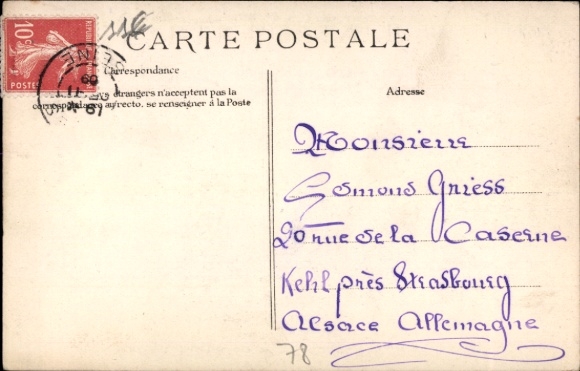 10c
POSTES
11€
CARTE POSTALE
SEINE
09
Correspondance
étrangers n'acceptent pas la
correspondance au recto. se renseigner à la Poste
Adresse
Monsieur
Edmond Griess
20 rue de la Caserne
Kehl près Strasbourg
Alsace Allemagne
78